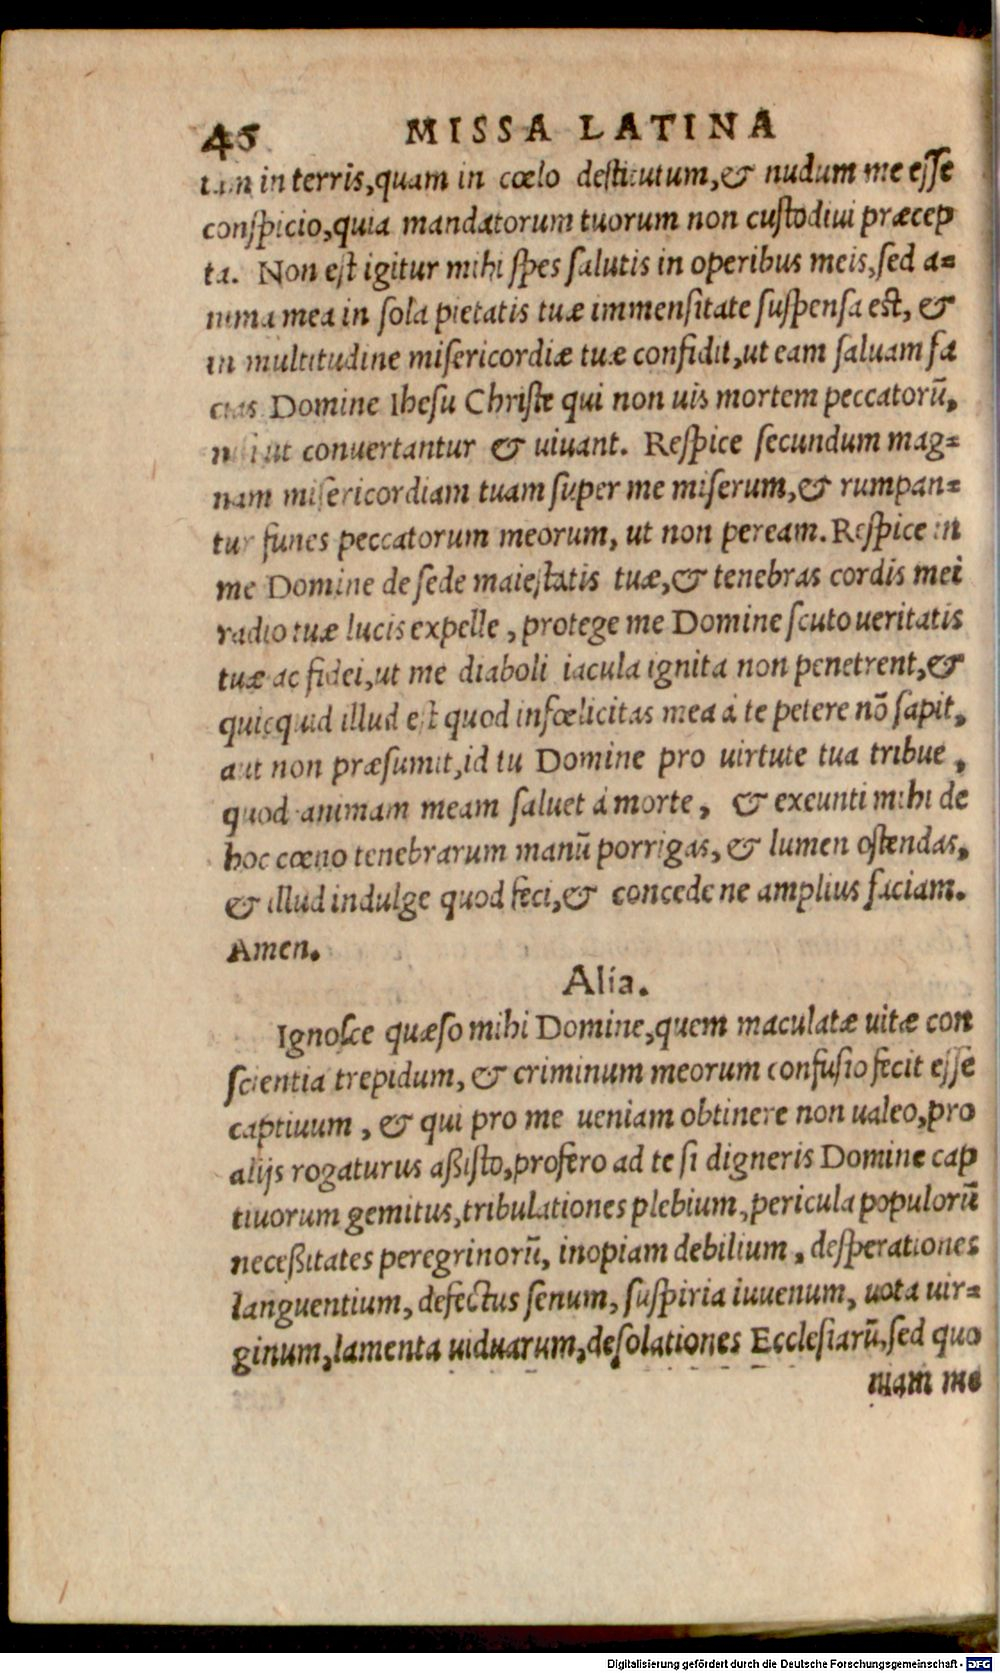 46 MISSA LATINA
tam in terris,quam in cœlo deſtitutum,& nudum me eſſe
conſpicio,quia mandatorum tuorum non cuſtodiui præcep
ta. Non eſt igitur mihi ſpes ſalutis in operibus meis,ſed a=
nima mea in ſola pietatis tuæ immenſitate ſuſpenſa eſt, &
in multitudine miſericordiæ tuæ confidit,ut eam ſaluam fa
cias Domine Iheſu Chriſte qui non uis mortem peccatorū,
niſi ut conuertantur & uiuant. Reſpice ſecundum mag=
nam miſericordiam tuam ſuper me miſerum,& rumpan=
tur funes peccatorum meorum, ut non peream. Reſpice in
me Domine de ſede maieſtatis tuæ,& tenebras cordis mei
radio tuæ lucis expelle, protege me Domine ſcuto ueritatis
tuæ ac fidei,ut me diaboli iacula ignita non penetrent,&
quicquid illud eſt quod infœlicitas mea à te petere nō ſapit,
aut non præſumit,id tu Domine pro uirtute tua tribue,
quod animam meam ſaluet à morte, & exeunti mihi de
hoc cœno tenebrarum manū porrigas, & lumen oſtendas,
& illud indulge quod feci,& concede ne amplius faciam.
Amen.
Alia.
Ignoſce quæſo mihi Domine,quem maculatæ uitæ con
ſcientia trepidum, & criminum meorum confuſio fecit eſſe
captiuum, & qui pro me ueniam obtinere non ualeo,pro
alijs rogaturus aßiſto,profero ad te ſi digneris Domine cap
tiuorum gemitus,tribulationes plebium,pericula populorū
neceßitates peregrinorū, inopiam debilium, deſperationes
languentium, defectus ſenum, ſuſpiria iuuenum, uota uir=
ginum,lamenta uiduarum,deſolationes Eccleſiarū,ſed quo
niam me
Digitalisierung gefördert durch die Deutsche Forschungsgemeinschaft - DFG